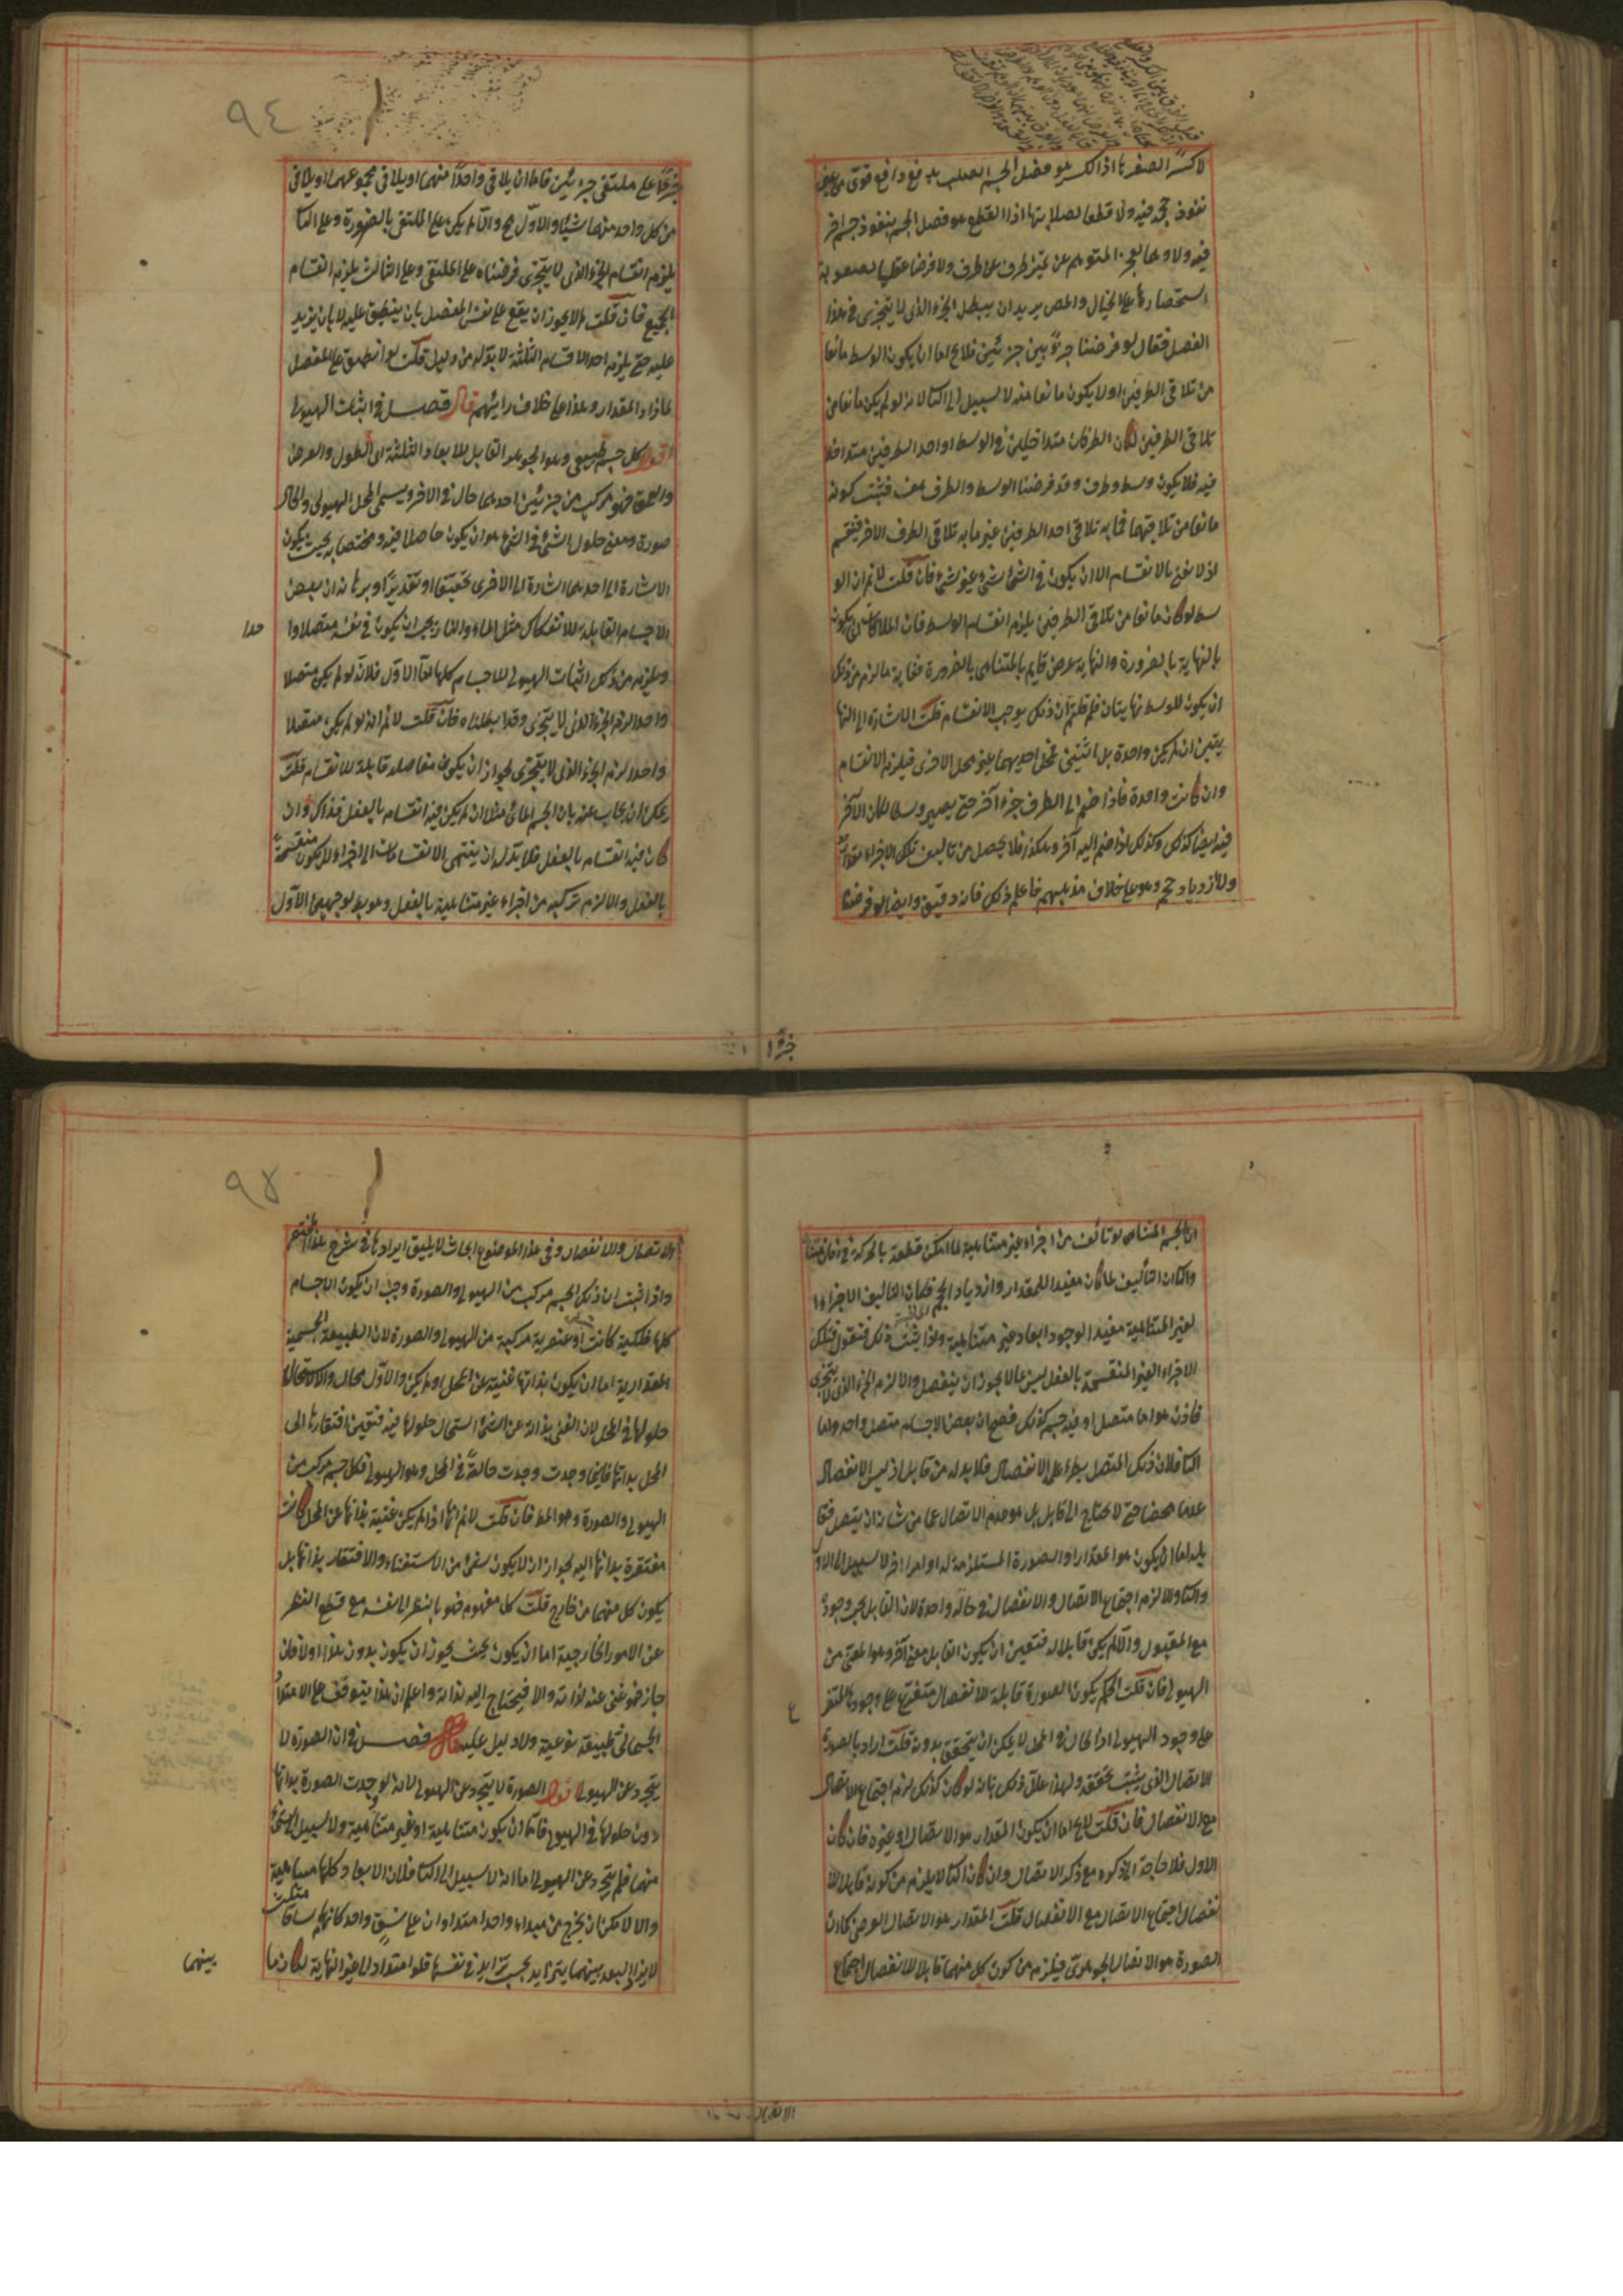 لا كسرًا لصغرها اذ الكسر هو فصل الجسم الصلب بدفع دافع قوى من غير
نفوذ حجم فيه ولا قطعا لصلابتها اذ القطع هو فصل الجسم بنفوذ جسم اخر
فيه ولا وهما لعجز المتوهم عن تميز طرف عن طرف ولا فرضا عقليا لصعوبة
استحضارها على الخيال والمص يريد ان يبطل الجزء الذى لا يتجزى فى هذا
الفصل فقال لو فرضنا جزءً بين جزئين فلا يخ اما ان يكون الوسط مانعا
من تلاقى الطرفين او لا يكون مانعا منه لا سبيل الى الثا لانه لو لم يكن مانعا من
تلاقى الطرفين لكان الطرفان متداخلين فى الوسط او احد الطرفين متداخلا
فيه فلا يكون وسط وطرف وقد فرضنا الوسط والطرف هف فثبت كونه
مانعا من تلاقيهما فما به تلاقى احد الطرفين غير ما به تلاقى الطرف الاخر فينقسم
اذ لا نعنى بالانقسام الا ان يكون فى الشئ شئ وغير شئ فان قلت لا نم ان الو
سط لو كان مانعا من تلاقى الطرفين يلزم انقسام الوسط فان الملاقاة يكون
بالنهاية بالضرورة والنهاية عرض قايم بالمتناهى بالضرورة فغاية ما لزم من ذلك
ان يكون للوسط نهايتان فلم قلتم ان ذلك يوجب الانقسام قلت الاشارة الى النها
يتين ان لم يكن واحدة بل اثنين فمحل احديهما غير محل الاخرى فيلزم الانقسام
وان كانت واحدة فاذا ضم الى الطرف جزء آخر حتى يصير وسطا لكان الآخر
فيه ايضا كذلك وكذلك اذا ضم اليه آخر وهكذا فلا يحصل من تاليف تلك الاجزاء مقدار
ولا ازدياد حجم وهو على خلاف مذهبهم فاعلم ذلك فانه دقيق وايضا لو فرضنا
جزءًا
٩٤
جزءًا على ملتقى جزئين فاما ان يلاقى واحدًا منهما او يلاقى مجموعهما او يلاقى
من كل واحد منهما شيئا والاول مح والا لم يكن على الملتقى بالضرورة وعلى الثا
يلزم انقسام الجزء الذى لا يتجزى فرضناه على الملتقى وعلى الثالث يلزم انقسام
الجميع فان قلت لم لا يجوز ان يقع على نفس المفصل بان ينطبق عليه لا بان يزيد
عليه حتى يلزم احد الاقسام الثلثة لا بد له من دليل قلت لو انطبق على المفصل
لما زاد المقدار وهذا على خلاف رايهم قال فصل فى اثبات الهيولى
اقول كل جسم طبيعى وهو الجوهر القابل للابعاد الثلثة اى الطول والعرض
والعمق فهو مركب من جزئين احدهما حال فى الاخر ويسمى المحل الهيولى والحال
صورة ومعنى حلول الشئ فى الشئ هو ان يكون حاصلا فيه ومختصا به بحيث يكون
الاشارة الى احدهما اشارة الى الاخرى تحقيقا او تقديرًا وبرهانه ان بعض
الاجسام القابلة للانفكاك مثل الماء والنار يجب ان يكون فى نفسه متصلا وا
حدا
ويلزم من ذلك اثبات الهيولى للاجسام كلها اما الاول فلانه لو لم يكن متصلا
واحدا لزم الجزء الذى لا يتجزى وقد ابطلناه فان قلت لا نم انه لو لم يكن متصلا
واحدا لزم الجزء الذى لا يتجزى لجواز ان يكون مفاصله قابلة للانقسام قلت
يمكن ان يجاب عنه بان الجسم المائى مثلا ان لم يكن فيه انقسام بالفعل فذاك وان
كان فيه انقسام بالفعل فلا بد له ان ينتهى الانقسامات الى اجزاء لا يكون منقسمة
بالفعل والا لزم تركبه من اجزاء غير متناهية بالفعل وهو بط لوجهين الاول
ان الجسم المتناهى لو تألف من اجزاء غير متناهية لما امكن قطعه بالحركة فى زمان متناه
والثا ان التأليف لما كان مفيدا للمقدار وازدياد الحجم فكان التاليف الاجزاء ا
لغير المتناهية مفيدا لوجود ابعاد غير متناهية واذا ثبت ذلك فنقول فتلك
الاجزاء الغير المنقسمة بالفعل ليس مما لا يجوز ان ينفصل والا لزم الجزء الذى لا يتجزى
فاذن هو اما متصل او فيه جسم كذلك فصح ان بعض الاجسام متصل واحد واما
الثا فلان ذلك المتصل يطرء على الانفصال فلا بد له من قابل اذ ليس الانفصال
عدما محضا حتى لا يحتاج الى قابل بل هو عدم الاتصال عما من شانه ان يتصل فقا
بله اما ان يكون هو المقدار او الصورة المستلزمة له او امرا اخر لا سبيل الى الاو
والثا والا لزم اجتماع الاتصال والانفصال فى حالة واحدة لان القابل يجب وجوده
مع المقبول والا لم يكن قابلا له فتعين ان يكون القابل معنى آخر وهو المعنى من
الهيولى فان قلت الحكم بكون الصورة قابلة للانفصال متفرع على وجودها المتفرع
على وجود الهيولى اذ الحال فى المحل لا يمكن ان يتحقق بدونه قلت اراد بالصورة
الاتصال الذى يثبت تحققه ولهذا علل ذلك بانه لو كان كذلك لزم اجتماع الاتصال
مع الانفصال فان قلت لا يخ اما ان يكون المقدار هو الاتصال او غيره فان كان
الاول فلا حاجة الى ذكره مع ذكر الاتصال وان كان الثا لا يلزم من كونه قابلا للا
نفصال اجتماع الاتصال مع الانفصال قلت المقدار هو الاتصال العرضى كما ان
الصورة هو الاتصال الجوهرى فيلزم من كون كل منهما قابلا للانفصال اجتماع
الاتصال
٩٥
الاتصال والانفصال وفى هذا الموضوع ابحاث لا يليق ايرادها فى شرح هذا المختصر
واذا ثبت ان ذلك الجسم مركب من الهيولى والصورة وجب ان يكون الاجسام
كلها فلكية كانت او عنصرية مركبة من الهيولى والصورة لان الطبيعة الجسمية
المقدارية اما ان يكون بذاتها غنية عن المحل او لم يكن والاول محال والا لاستحال
حلولها فى المحل لان الغنى بذاته عن الشئ استحال حلوله فيه فتعين افتقارها الى
المحل بذاتها فاينما وجدت وجدت حالةً فى المحل وهو الهيولى فكل جسم مركب من
الهيولى والصورة وهو المط فان قلت لا نم انها اذا لم يكن غنية بذاتها عن المحل كانت
مفتقرة بذاتها اليه لجواز ان لا يكون شئ من الاستغناء والافتقار بذاتها بل
يكون كل منهما من خارج قلت كل مفهوم فهو بالنظر الى نفسه مع قطع النظر
عن الامور الخارجية اما ان يكون بحيث يجوز ان يكون بدون هذا اولا فان
جاز فهو غنى عنه لذاته والا فيحتاج اليه لذاته واعلم ان هذا يتوقف على الامتداد
الجسمانى طبيعة نوعية ولا دليل عليه قال فصل فى ان الصورة لا
يتجرد عن الهيولى اقول الصورة لا يتجرد عن الهيولى لانه لو وجدت الصورة بذاتها
دون حلولها فى الهيولى فاما ان يكون متناهية او غير متناهية ولا سبيل الى شئ
منهما فلم يتجرد عن الهيولى اما انه لا سبيل الى الثا فلان الابعاد كلها متناهية
والا لامكن ان يخرج من مبداء واحد امتدادان على نسق واحد كانهما ساقا مثلث
لا يزال البعد بينهما يتزايد بحسب تزايد فى نفسها فلو امتدا الى غير النهاية لكان ما
بينهما